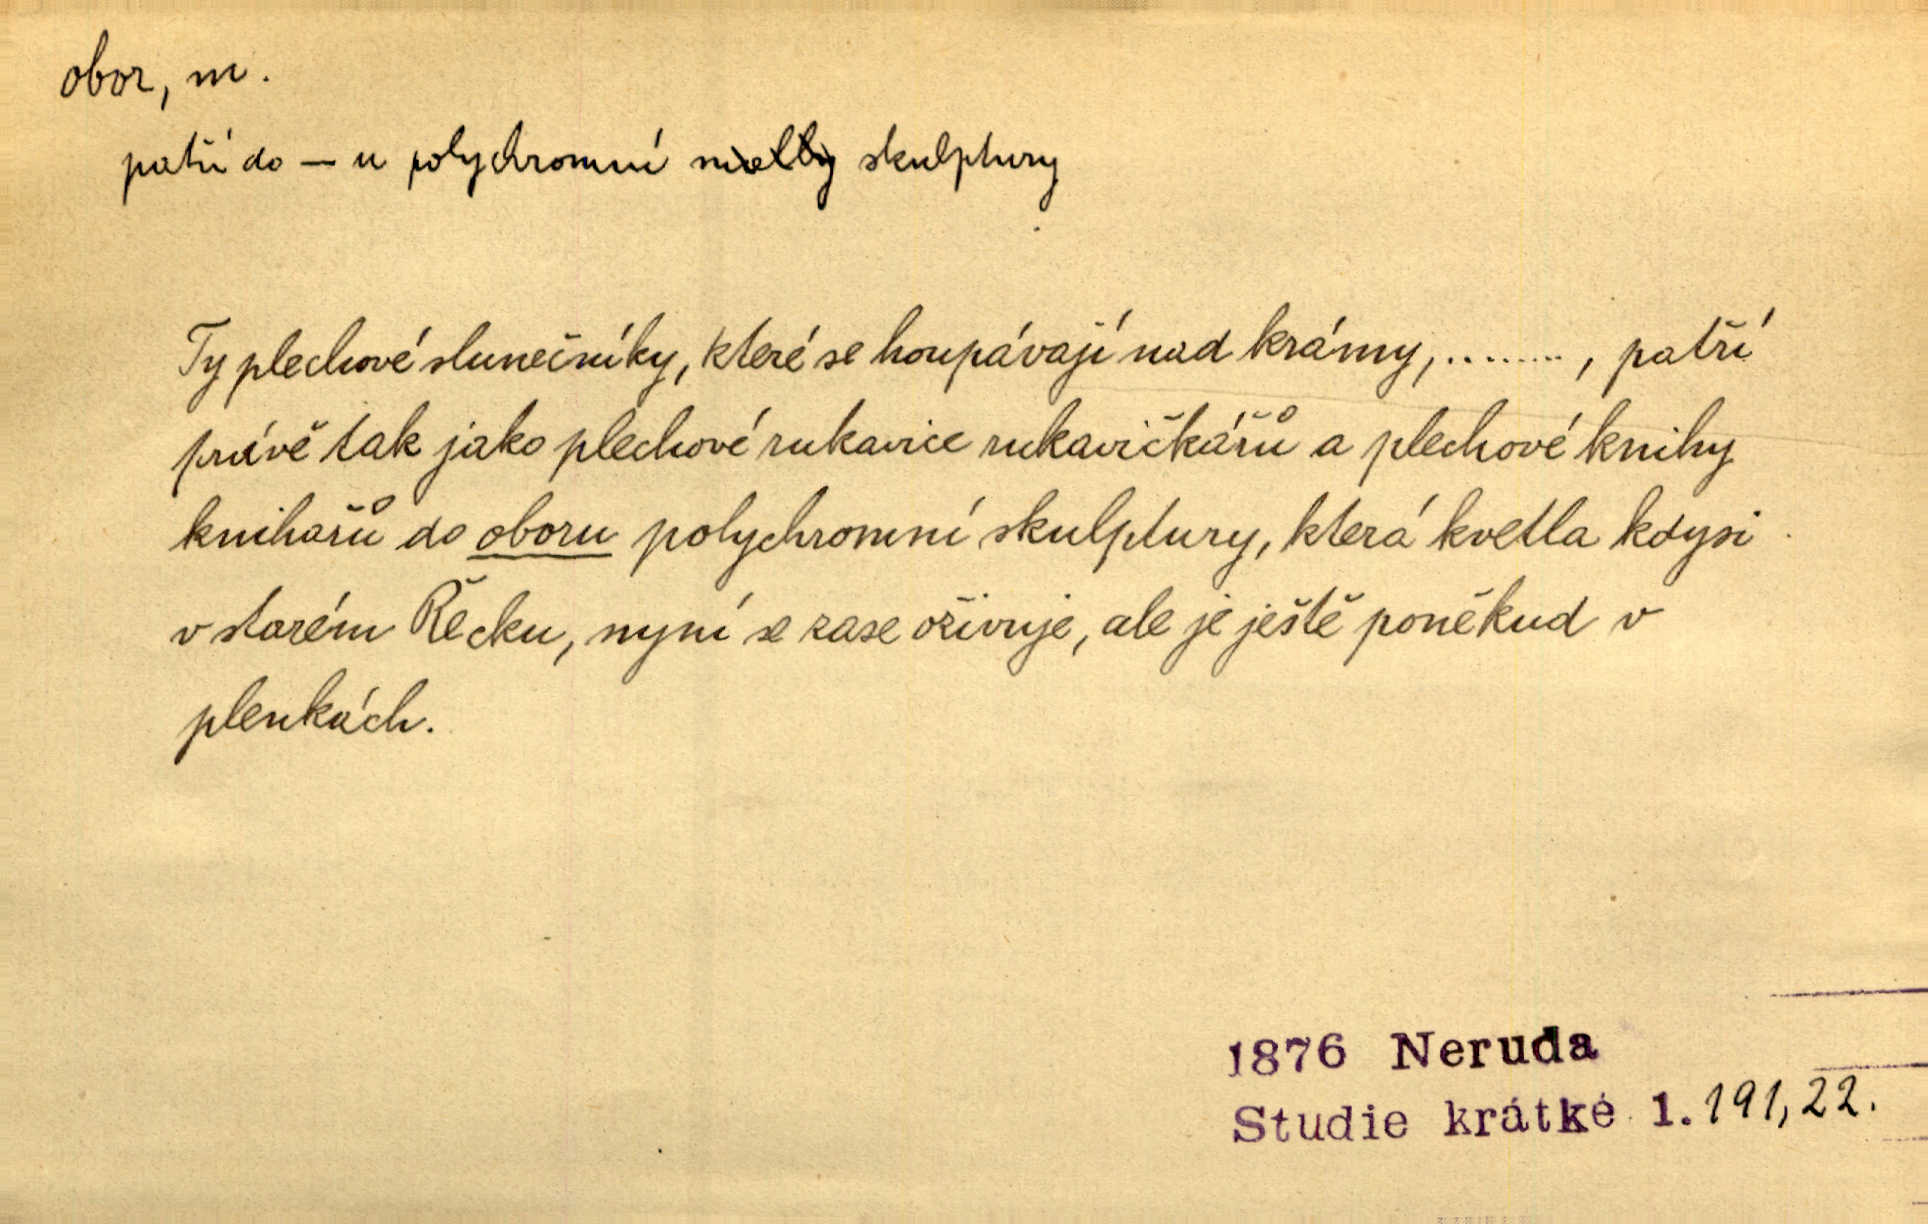 obor, m.
patří do — u polychromní malby skulptury
Ty plechové slunečníky, které se houpávají nad krámy, ........, patří
právě tak jako plechové rukavice rukavičkářů a plechové knihy
knihařů do oboru polychromní skulptury, která kvetla kdysi
v starém Řecku, nyní se zase oživuje, ale je ještě poněkud v
plenkách.
1876 Neruda
Studie krátké 1. 191, 22.